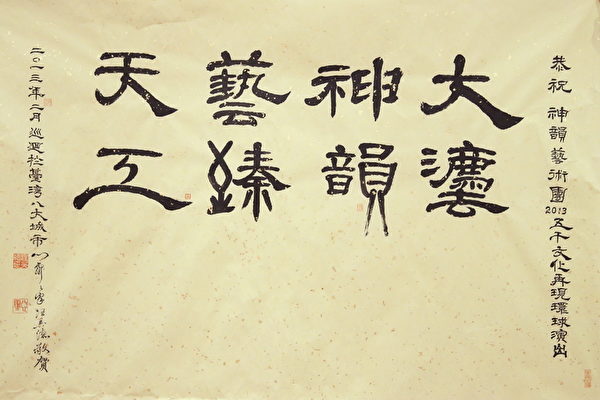 恭祝 神韻藝術團2013五千文化再現環球演出
大灋
神韻
藝臻
天工
二〇一三年二月巡迴於臺灣八大城市 敬賀